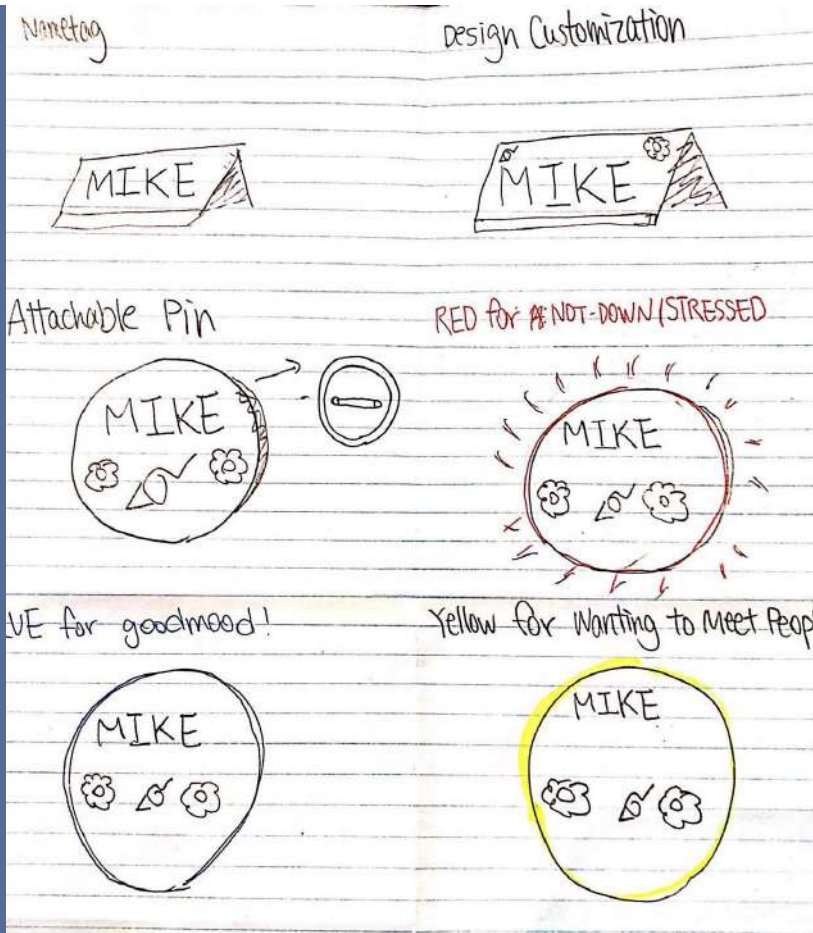 Nametag
Design Customization
MIKE
MIKE
Attachable Pin
RED for NOT-DOWN/STRESSED
MIKE
MIKE
UE for goodmood!
Yellow for Wanting to Meet Peop
MIKE
MIKE